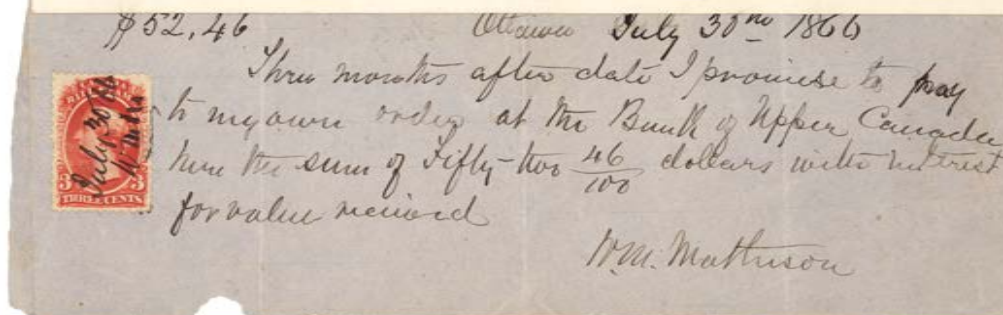 $52,46 Ottawa July 30th 1866
Three months after date I promise to pay
to my own order at the Bank of Upper Canada
here the sum of Fifty-two 46/100 dollars with interest
for value received
Wm. Matheson
July 30 66
W. M.
3 3
THREE CENTS